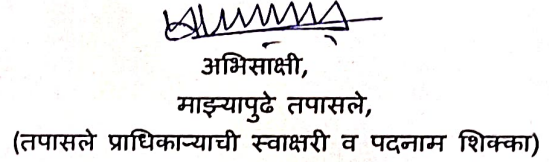 अभिसाक्षी,
माझ्यापुढे तपासले,
(तपासले प्राधिकाऱ्याची स्वाक्षरी व पदनाम शिक्का)